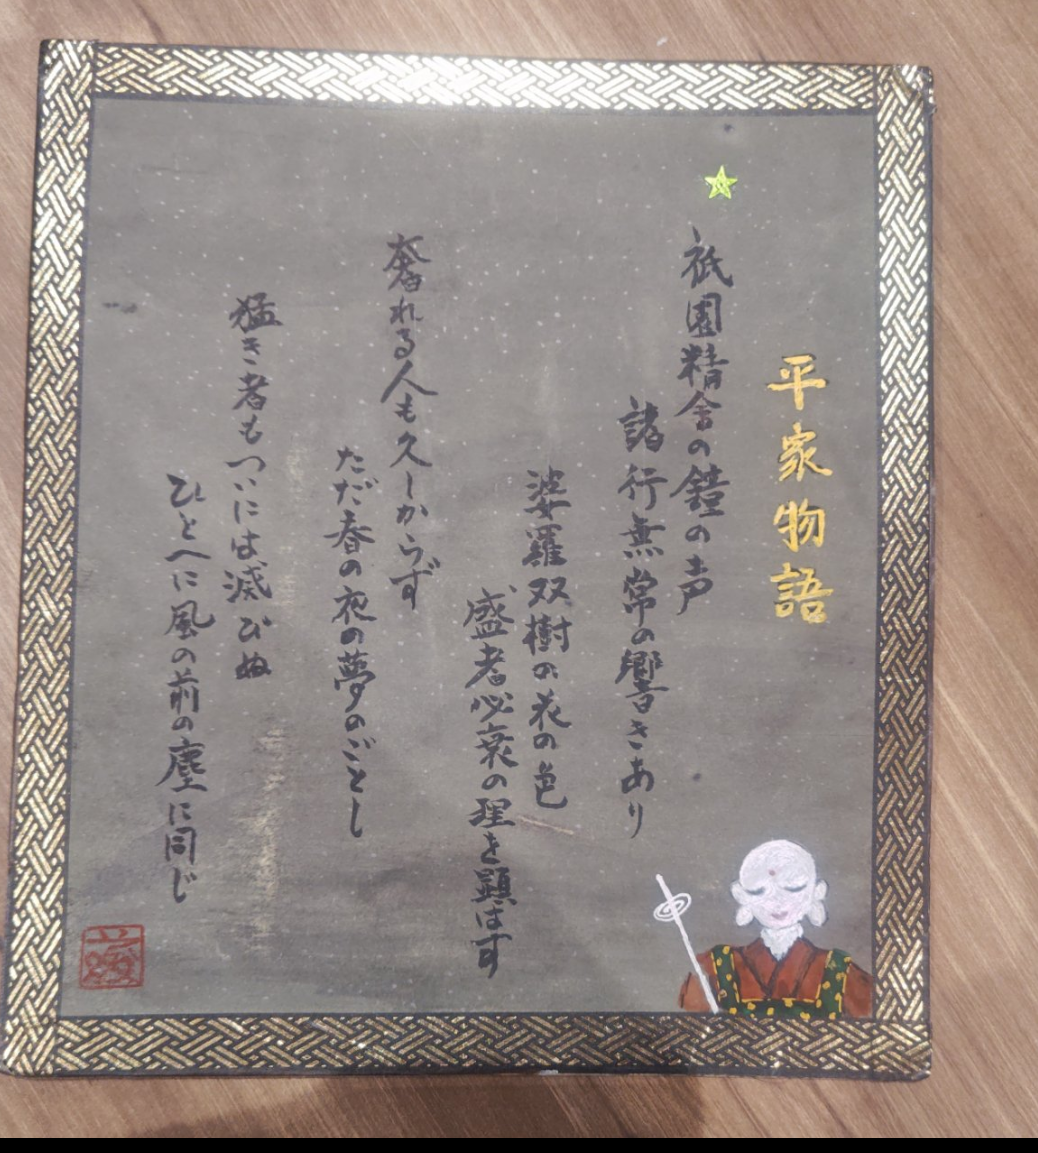 平家物語
祇園精舎の鐘の声
諸行無常の響きあり
婆羅双樹の花の色
盛者必衰の理を顕はす
奢れる人も久しからず
ただ春の夜の夢のごとし
猛き者もついには滅びぬ
ひとへに風の前の塵に同じ